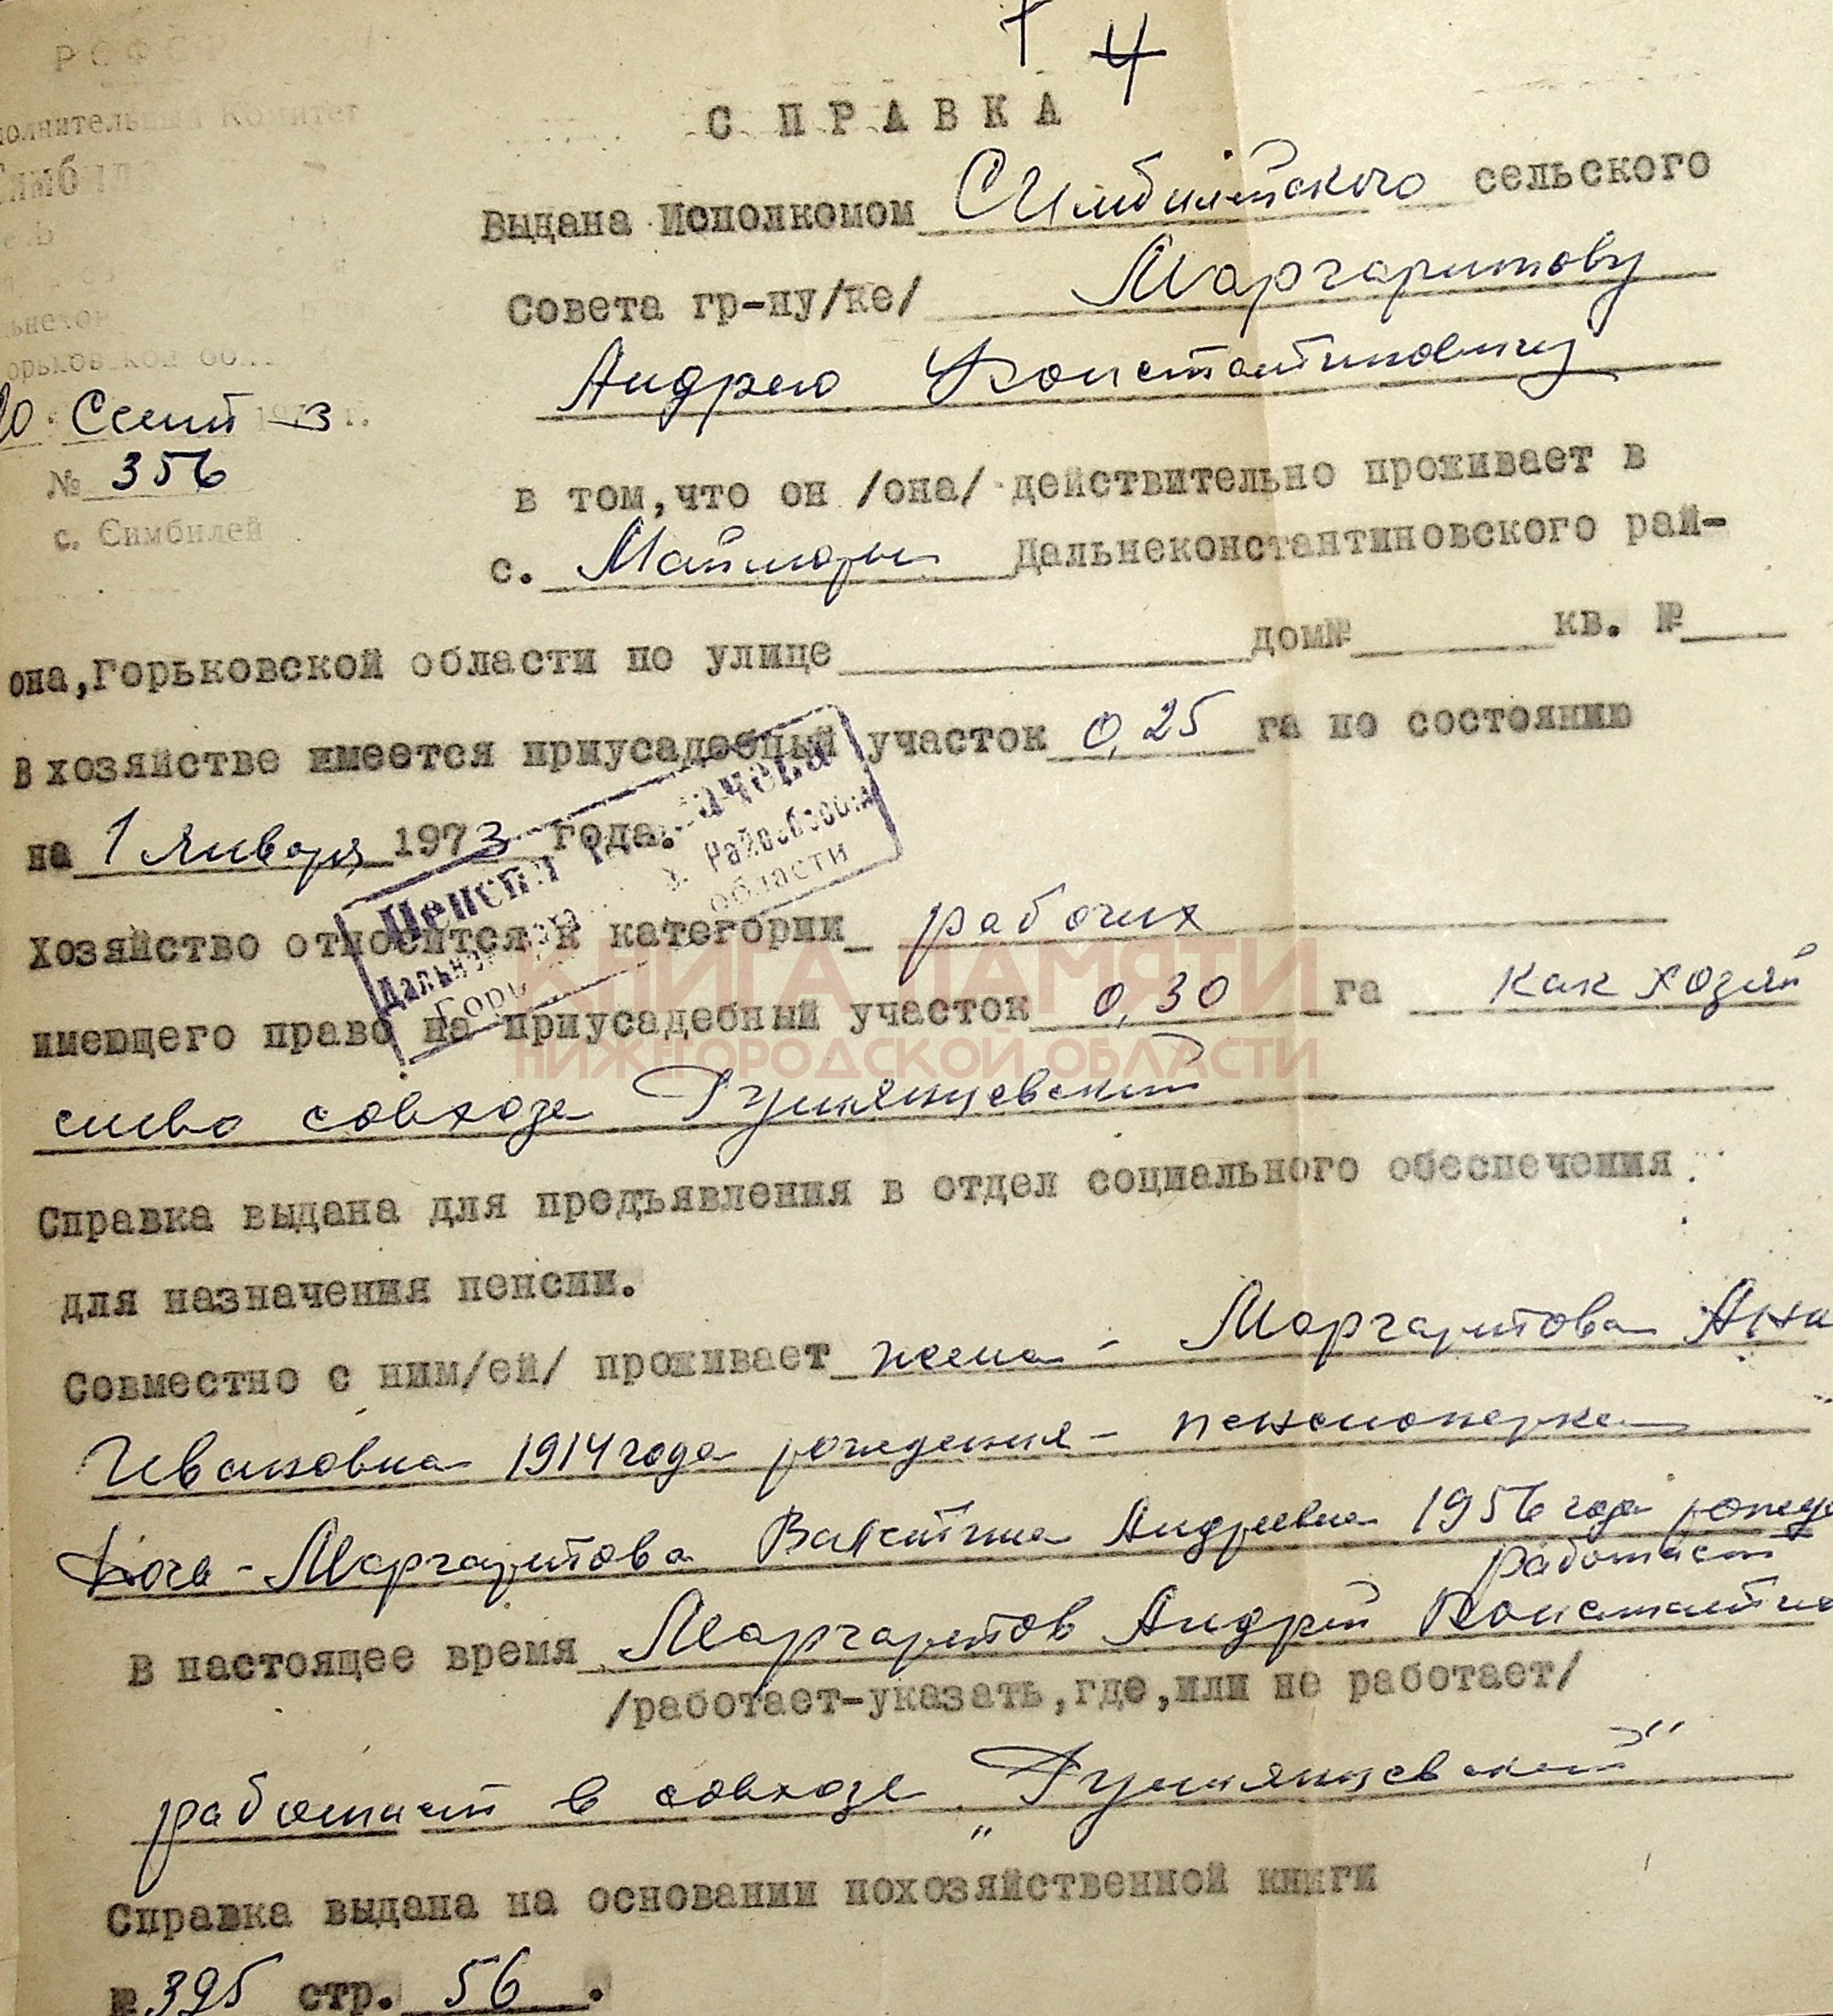 РСФСР
полнительный Комитет
Симбил
Ь
льнекон
орьковской обл.
20 Сент 1973 г.
№ 356
с. Симбилей
4
СПРАВКА
Выдана Исполкомом Симбилейского сельского
Совета гр-ну/ке/ Маргаритову
Андрею Константиновичу
в том,что он /она/ действительно проживает в
с. Майморы Дальнеконстантиновского рай-
она,Горьковской области по улице дом№ кв. №
В хозяйстве имеется приусадебный участок 0,25 га по состоянию
на 1 января 1973 года.
Пенсия ачена
Дальне Райсобесом
Горь области
Хозяйство относится к категории рабочих
имеющего право на приусадебный участок 0,30 га как хозяй
ство совхоза Румянцевский
КНИГА ПАМЯТИ
НИЖЕГОРОДСКОЙ ОБЛАСТИ
Справка выдана для предъявления в отдел социального обеспечения
для назначения пенсии.
Совместно с ним/ей/ проживает жена - Маргаритова Анна
Ивановна 1914 года рождения - пенсионерка
Дочь - Маргаритова Валентина Андреевна 1956 года рожде
работает
В настоящее время Маргаритов Андрей Константино
/работает-указать,где,или не работает/
работает в совхозе „Румянцевский"
Справка выдана на основании похозяйственной книги
№ 395 стр. 56.